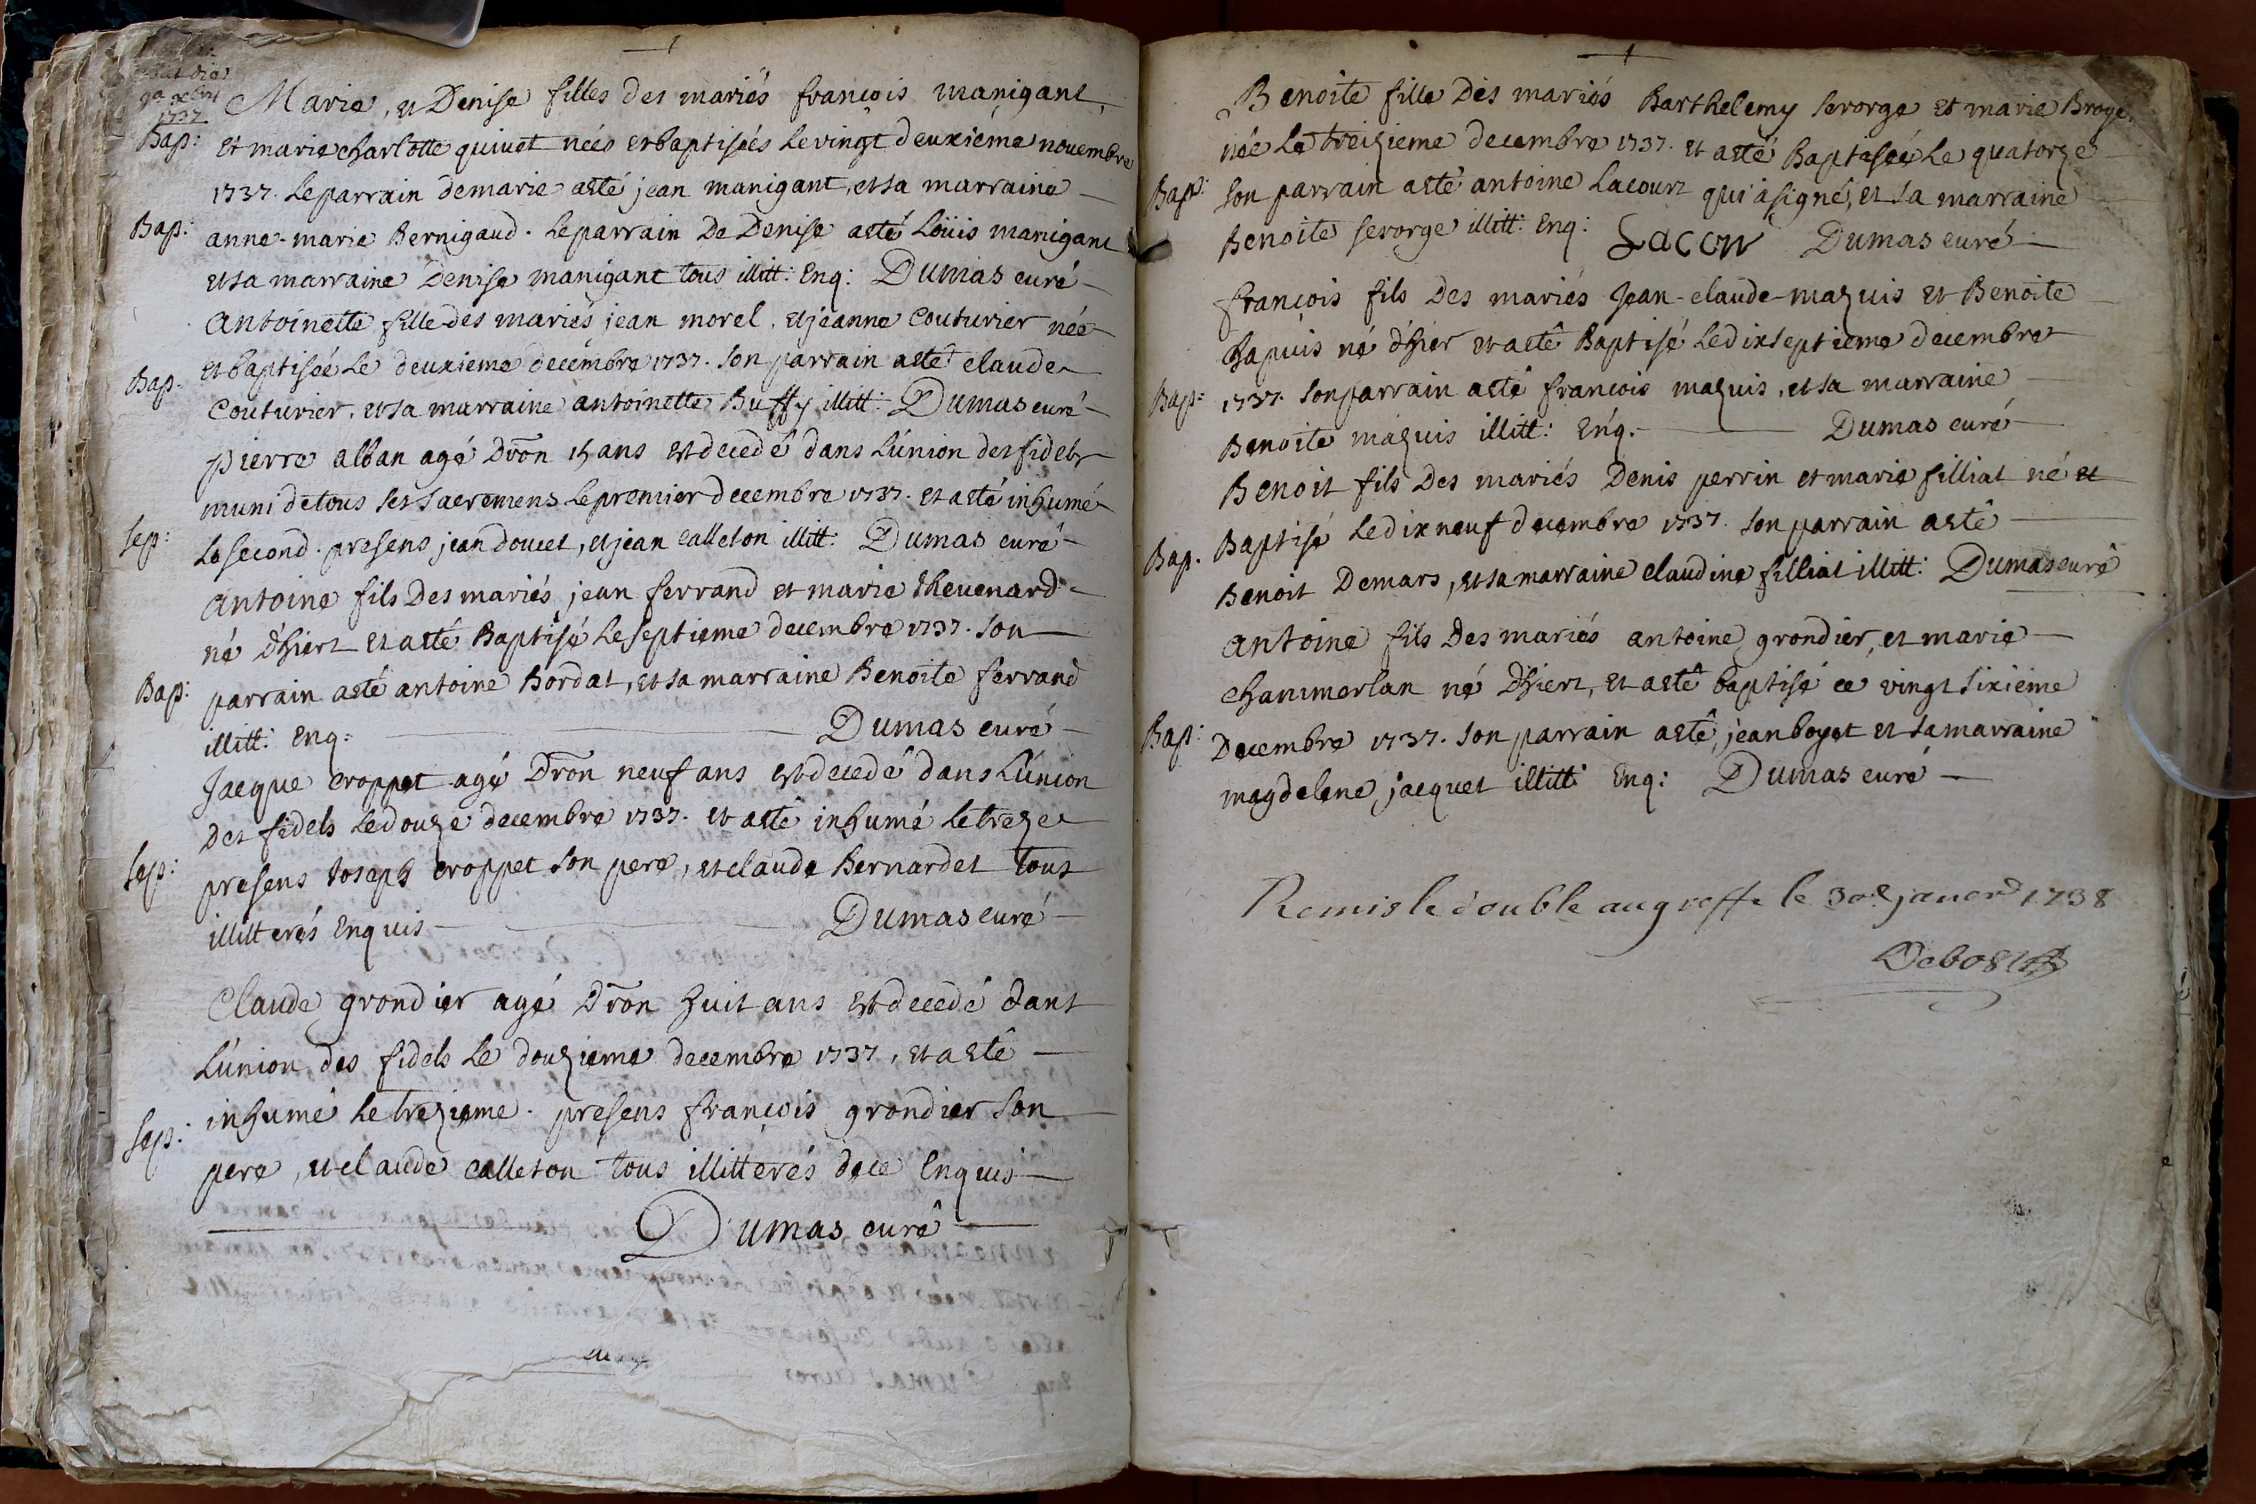 1737
Marie, et Denise filles des mariés françois manigant,
Bap: et marie charlotte quivet nées et baptisées le vingt deuxiéme novembre
1737. le parrain de marie a eté jean manigant, et sa marraine
Bap: anne-marie Bernigaud. le parrain De Denise a eté Loüis manigant
et sa marraine Denise manigant tous illitt: Enq: Dumas curé
Antoinette fille des mariés jean morel, et jeanne Couturier née
Bap. et baptisée le deuxieme decembre 1737. son parrain a eté claude
Couturier, et sa marraine antoinette Buffy illitt: Dumas curé
pierre alban agé Dron 15 ans est decedé dans L'union des fidels
muni de tous ses sacremens le premier decembre 1737. et a eté inhumé
sep: le second. presens jean doucet, et jean calleton illitt: Dumas curé
antoine fils Des mariés jean ferrand et marie thevenard
né d'hiert et a eté Baptisé le septieme decembre 1737. son
Bap: parrain a eté antoine Bordat, et sa marraine Benoite ferrand
illitt: Enq: Dumas curé
Jacque croppet agé Dron neuf ans est decedé dans L'union
Des fidels le douze decembre 1737. et a eté inhumé le treze
sep: presens Joseph croppet son pere, et claude Bernardet tous
illitterés Enquis Dumas curé
Claude grondier agé Dron huit ans est decedé dant
L'union des fidels le douzieme decembre 1737, et a eté
inhumé le trezieme. presens françois grondier son
sep: pere, et claude calleton tous illitterés de ce Enquis
Dumas curé
Benoite fille Des mariés Barthelemy serorge et marie Broye
née le treizieme decembre 1737. et a eté Baptisée le quatorze
Bap: son parrain a eté antoine Lacourt qui a signé, et sa marraine
Benoite serorge illitt: Enq: Lacour Dumas curé
françois fils Des mariés Jean-claude-mazuis et Benoite
chapuis né d'hier et a eté Baptisé le dixseptieme decembre
Bap: 1737. son parrain a eté francois mazuis, et sa marraine
Benoite mazuis illitt: Enq. Dumas curé
Benoit fils Des mariés Denis perrin et marie filliat né et
Bap. Baptisé le dix neuf decembre 1737. son parrain a eté
Benoit Demars, et sa marraine claudine filliat illitt: Dumas curé
antoine fils Des mariés antoine grondier, et marie
chammerlan né D'hiert, et a eté baptisé ce vingt sixiéme
Bap: Decembre 1737. son parrain a eté, jean boyet et sa marraine
magdelene jacquet illitt: Enq: Dumas curé
Remis le double au greffe le 30e janerd 1738
Debost